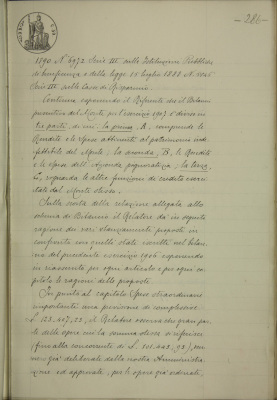 - 286 -
1890 N. 6972 Serie III sulle Istituzioni Pubbliche
di beneficenza e della legge 15 luglio 1888 N. 5546
Serie III sulle Casse di Risparmio.
Continua esponendo il Referente che il Bilancio
preventivo del Monte per l'esercizio 1907 è diviso in
tre parti, di cui: la prima, A, comprende le
Rendite e le spese attinenti al patrimonio
del Monte; la seconda, B, le Rendite
e le spese dell'Azienda pignoratizia; la terza,
C, riguarda le altre funzioni di credito eserci-
tate dal Monte stesso.
Sulla scorta della relazione allegata allo
schema di Bilancio il Relatore dà in seguito
ragione dei vari stanziamenti proposti in
confronto con quelli stati iscritti nel bilan-
cio del precedente esercizio 1906 esponendo
in riassunto per ogni articolo e per ogni ca-
pitolo le ragioni delle proposte.
In punto al capitolo Spese straordinarie
importanti una previsione di complessive
L. 123.407,23, il Relatore osserva che gran par-
te delle opere cui la somma stessa si riferisce
(fino alla concorrenza di L. 101.449,92), ven-
nero già deliberate dalla nostra Amministra-
zione ed approvate, per le opere già ordinate,